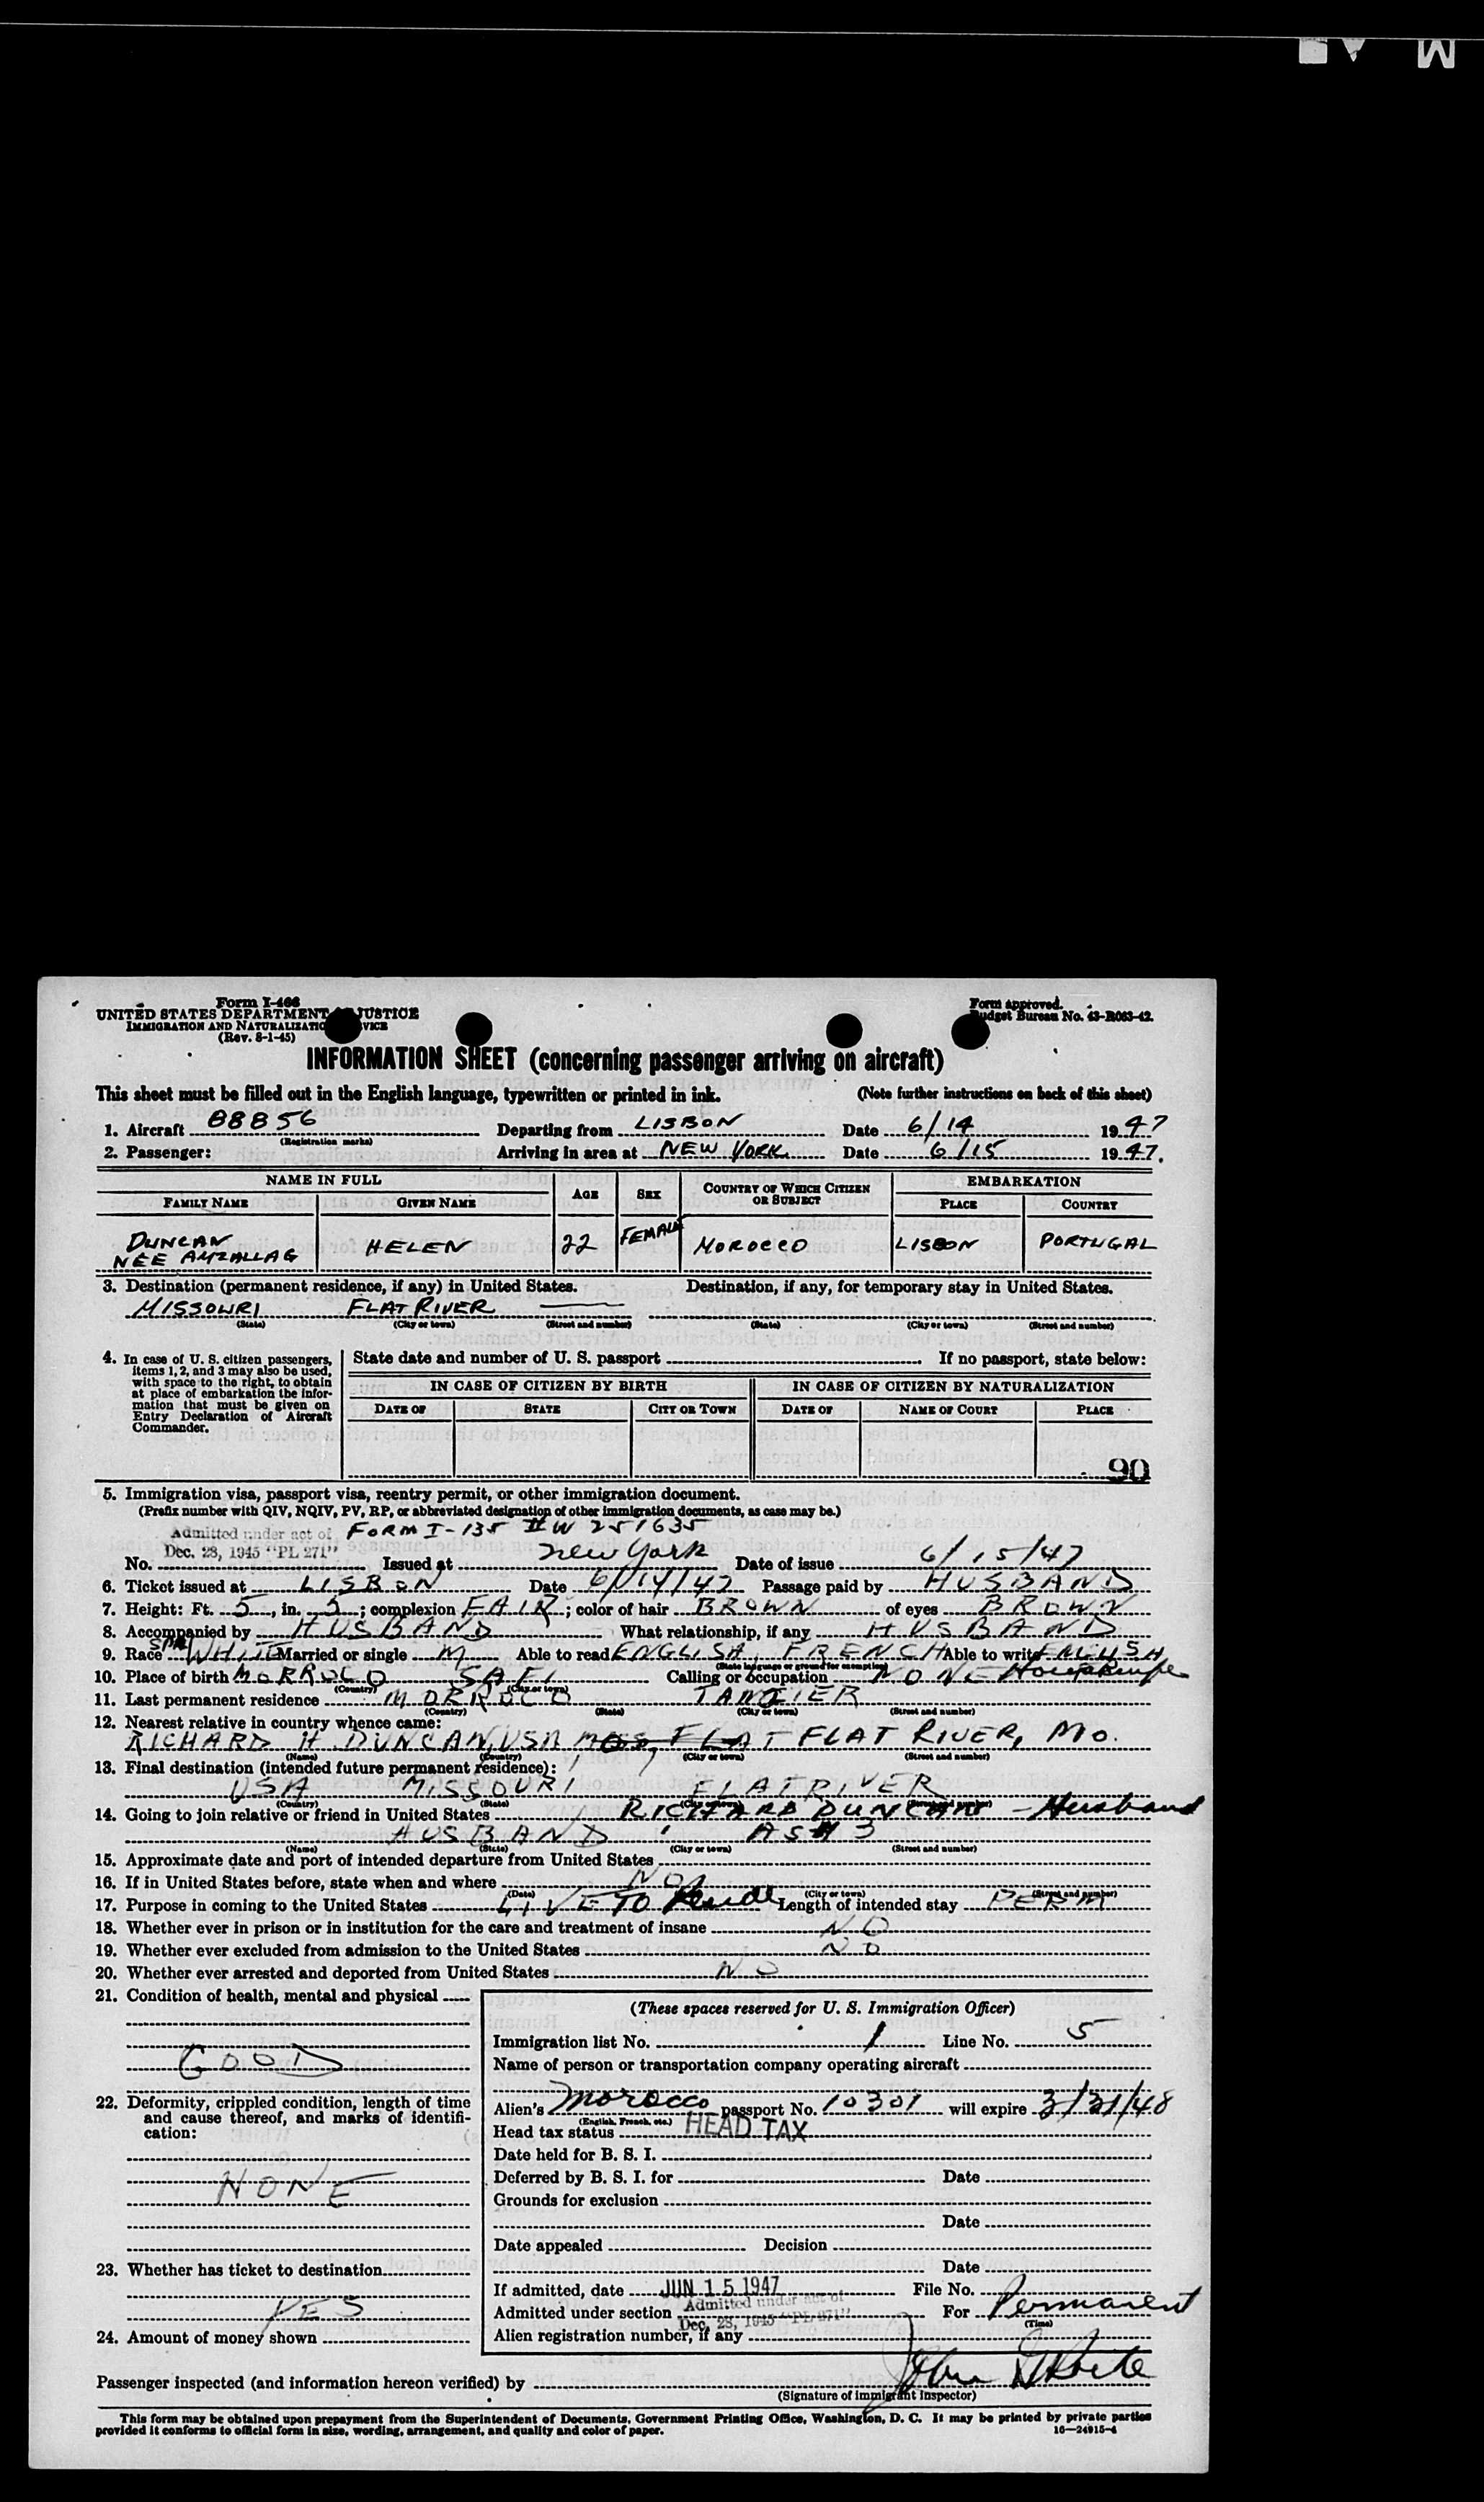 M
Form I-466
UNITED STATES DEPARTMENT JUSTICE
IMMIGRATION AND NATURALIZATIO VICE
(Rev. 8-1-45)
Form approved.
Budget Bureau No. 43-R063-42.
INFORMATION SHEET (concerning passenger arriving on aircraft)
This sheet must be filled out in the English language, typewritten or printed in ink. (Note further instructions on back of this sheet)
1. Aircraft 88856 Departing from LISBON Date 6/14 1947
(Registration marks)
2. Passenger: Arriving in area at NEW YORK Date 6/15 1947.
NAME IN FULL AGE SEX COUNTRY OF WHICH CITIZEN OR SUBJECT EMBARKATION
FAMILY NAME GIVEN NAME PLACE COUNTRY
DUNCAN
NEE AMZALLAG HELEN 22 FEMALE MOROCCO LISBON PORTUGAL
3. Destination (permanent residence, if any) in United States. Destination, if any, for temporary stay in United States.
MISSOURI FLAT RIVER
(State) (City or town) (Street and number) (State) (City or town) (Street and number)
4. In case of U. S. citizen passengers, items 1, 2, and 3 may also be used, with space to the right, to obtain at place of embarkation the information that must be given on Entry Declaration of Aircraft Commander.
State date and number of U. S. passport If no passport, state below:
IN CASE OF CITIZEN BY BIRTH IN CASE OF CITIZEN BY NATURALIZATION
DATE OF STATE CITY OR TOWN DATE OF NAME OF COURT PLACE
90
5. Immigration visa, passport visa, reentry permit, or other immigration document.
(Prefix number with QIV, NQIV, PV, RP, or abbreviated designation of other immigration documents, as case may be.)
Admitted under act of FORM I-135 #W 251635
Dec. 28, 1945 "PL 271"
No. Issued at New York Date of issue 6/15/47
6. Ticket issued at LISBON Date 6/14/47 Passage paid by HUSBAND
7. Height: Ft. 5, in. 5; complexion FAIR; color of hair BROWN of eyes BROWN
8. Accompanied by HUSBAND What relationship, if any HUSBAND
9. Race WHITE Married or single M Able to read ENGLISH, FRENCH Able to write ENGLISH
(State language or ground for exemption)
10. Place of birth MORROCO SAFI Calling or occupation NONE
(Country) (City or town)
11. Last permanent residence MORROCO TANGIER
(Country) (State) (City or town) (Street and number)
12. Nearest relative in country whence came:
RICHARD H. DUNCAN, USA FLAT RIVER, MO.
(Name) (Country) (City or town) (Street and number)
13. Final destination (intended future permanent residence):
USA MISSOURI FLAT RIVER
(Country) (State) (City or town) (Street and number)
14. Going to join relative or friend in United States RICHARD DUNCAN - Husband
HUSBAND
(Name) (State) (City or town) (Street and number)
15. Approximate date and port of intended departure from United States
16. If in United States before, state when and where NO
(Date) (City or town) (Street and number)
17. Purpose in coming to the United States LIVE TO Reside Length of intended stay PERM
18. Whether ever in prison or in institution for the care and treatment of insane NO
19. Whether ever excluded from admission to the United States NO
20. Whether ever arrested and deported from United States NO
21. Condition of health, mental and physical
GOOD
22. Deformity, crippled condition, length of time and cause thereof, and marks of identification:
NONE
23. Whether has ticket to destination
YES
24. Amount of money shown
(These spaces reserved for U. S. Immigration Officer)
Immigration list No. 1 Line No. 5
Name of person or transportation company operating aircraft
Alien's Morocco passport No. 10301 will expire 3/31/48
(English, French, etc.)
Head tax status HEAD TAX
Date held for B. S. I.
Deferred by B. S. I. for Date
Grounds for exclusion
Date
Date appealed Decision
Date
If admitted, date JUN 15 1947 File No.
Admitted under section Admitted under act of Dec. 28, 1945 "PL 271" For Permanent
(Time)
Alien registration number, if any
Passenger inspected (and information hereon verified) by John
(Signature of immigrant inspector)
This form may be obtained upon prepayment from the Superintendent of Documents, Government Printing Office, Washington, D. C. It may be printed by private parties
provided it conforms to official form in size, wording, arrangement, and quality and color of paper. 16—24915-4